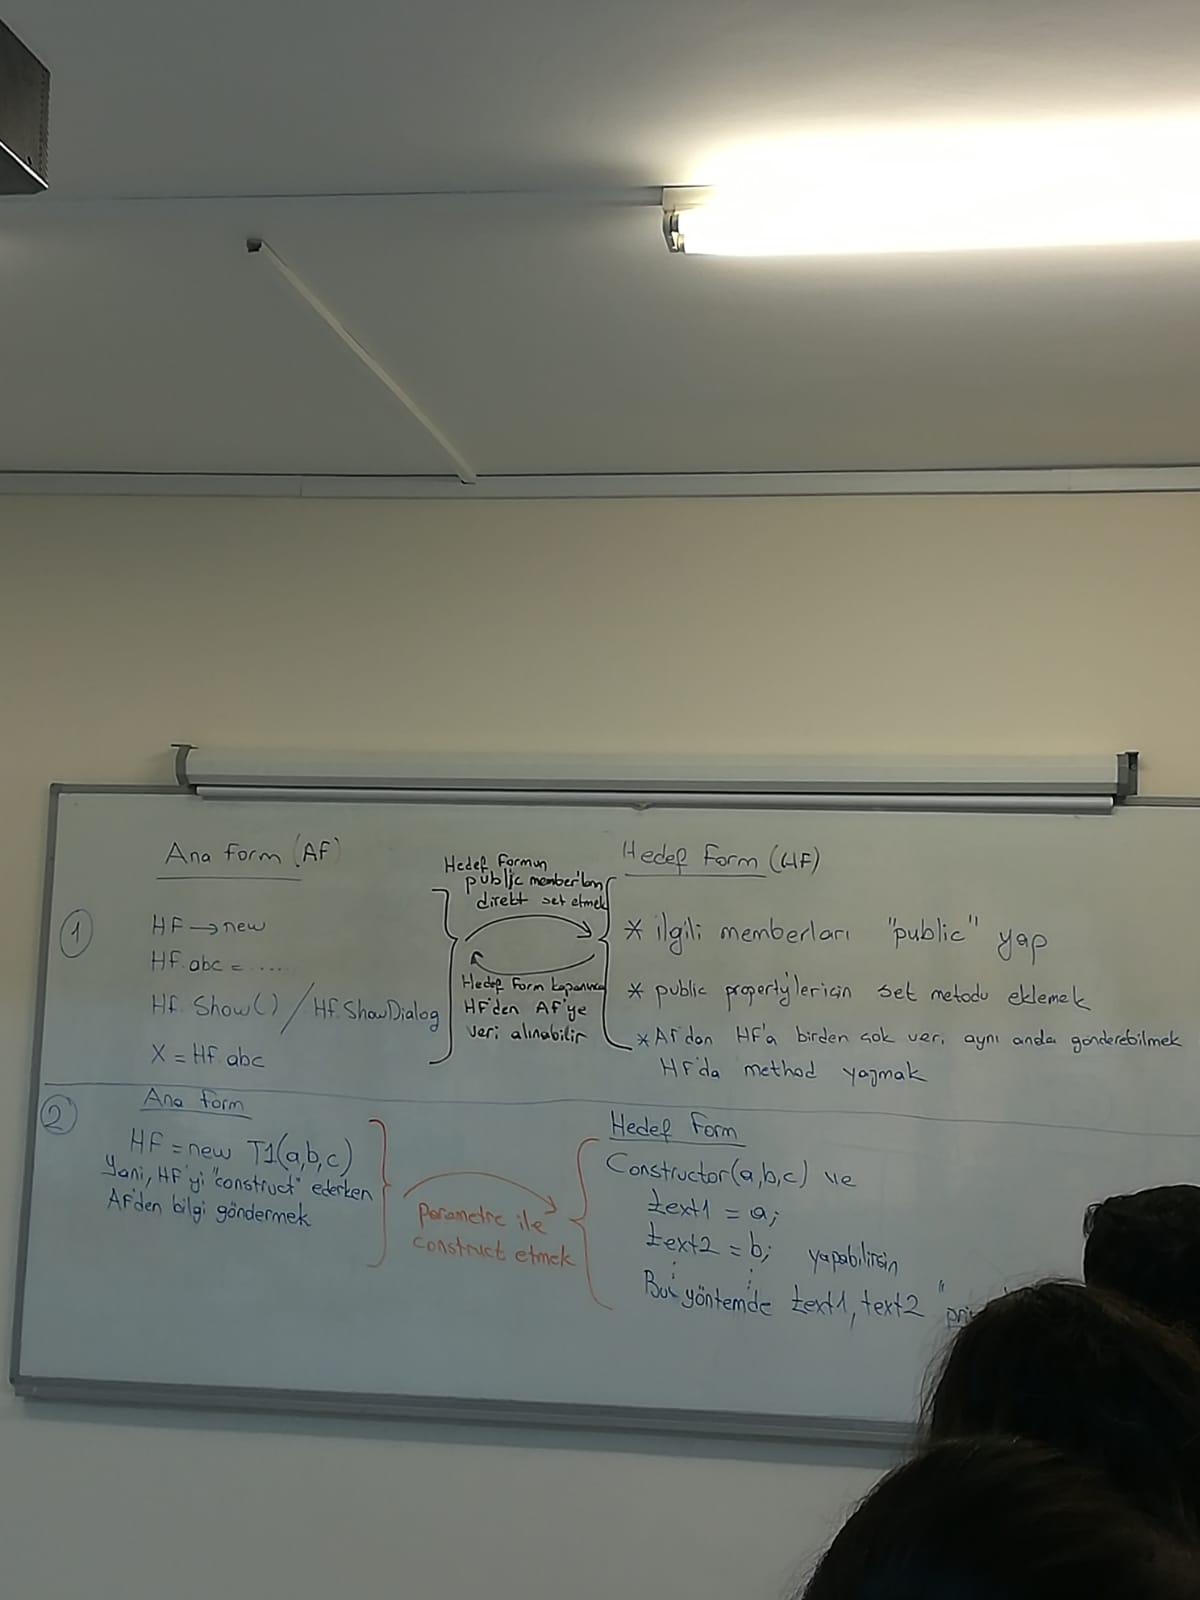 Ana Form (AF)
1
HF → new
HF.abc = .....
HF.Show() / HF.ShowDialog
X = HF.abc
Hedef Formun
public member'ları
direkt set etmek
Hedef Form kapanınca
HF'den AF'ye
veri alınabilir
Hedef Form (HF)
* ilgili memberları "public" yap
* public property'ler için set metodu eklemek
* AF'dan HF'a birden çok veri aynı anda gönderebilmek
HF'da method yazmak
2
Ana Form
HF = new T1(a,b,c)
Yani, HF'yi "construct" ederken
AF'den bilgi göndermek
parametre ile
construct etmek
Hedef Form
Constructor(a,b,c) ve
text1 = a;
text2 = b; yapabilirsin
Bu yöntemde text1, text2 "